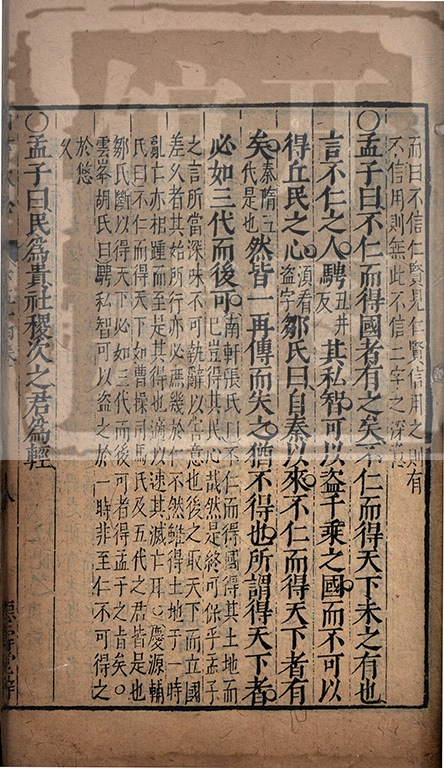 而曰不信仁賢見仁賢信用之則有
不信用則無此不信二字之深意
○孟子曰不仁而得國者有之矣不仁而得天下未之有也
言不仁之人騁丑井反其私智可以盜千乘之國而不可以
得丘民之心須看盜字鄒氏曰自秦以來不仁而得天下者有
矣秦隋五代是也然皆一再傳而失之猶不得也所謂得天下者
必如三代而後可南軒張氏曰不仁而得國得其土地而已豈得其民心哉然是終可保乎孟子
之言所當深味不可執辭以害意也後之取天下而立國
差久者其始所行亦必庶幾於仁不然雖得土地于一時
亂亡亦相踵而至是其得也適以速其滅亡耳○慶源輔
氏曰不仁而得天下如曹操司馬氏及五代之君皆是也
鄒氏斷以得天下必如三代而後可者得孟子之旨矣○
雲峯胡氏曰騁私智可以盜之於一時非至仁不可得之
於悠久
○孟子曰民為貴社稷次之君為輕